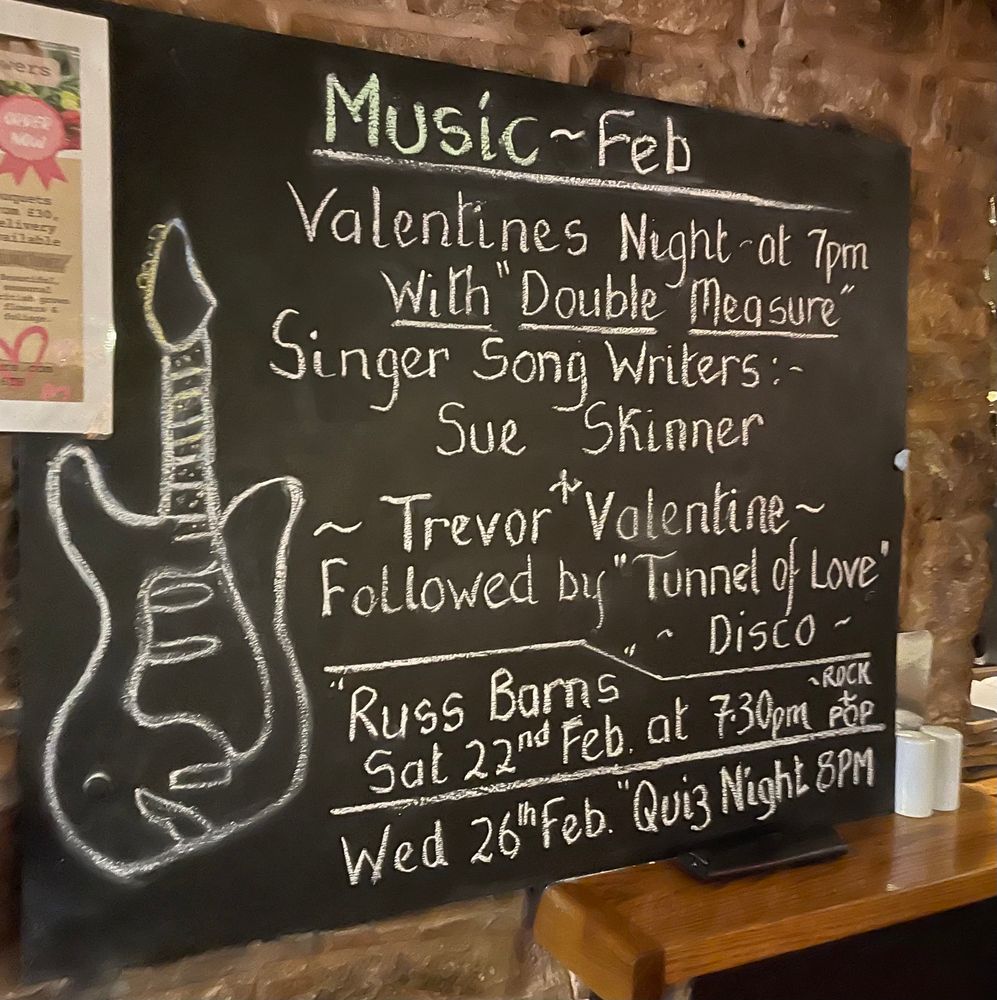 Music ~ Feb
Valentines Night - at 7pm
With "Double Measure"
Singer Song Writers:-
Sue Skinner
+
~ Trevor Valentine ~
Followed by "Tunnel of Love"
~ Disco ~
"Russ Barns"
~ROCK
+
POP
Sat 22nd Feb. at 7.30pm
Wed 26th Feb. "Quiz Night 8PM
wers
ORDER
NOW
£30,